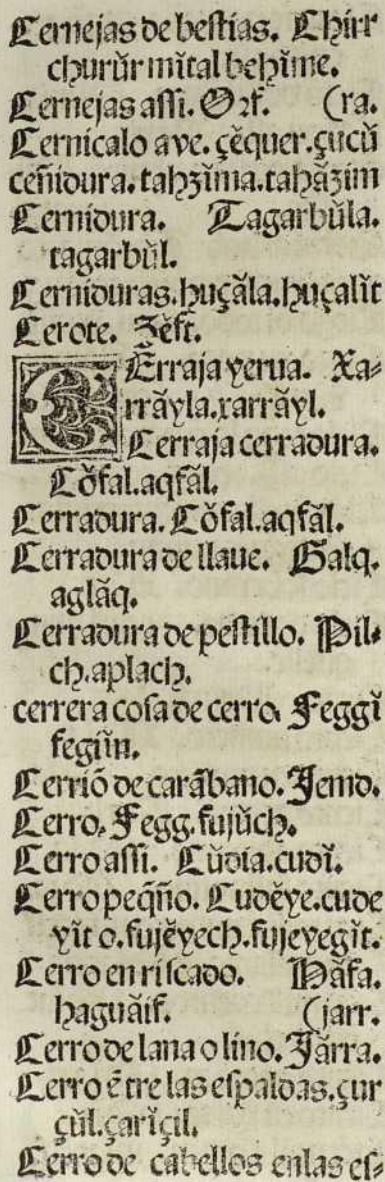 Cernejas de bestias. Chirr
churŭr mĭtal behĭme.
Cernejas assi. Orf. (ra.
Cernicalo ave. çĕquer. çucŭ
ceñidura. tahzĭma. tahăzim
Cernidura. Tagarbŭla.
tagarbŭl.
Cerniduras. huçăla. huçalĭt
Cerote. Zĕft.
CErraja yerua. Xa-
rrăyla. xarrăyl.
Cerraja cerradura.
Cŏfal. aqfăl.
Cerradura. Cŏfal. aqfăl.
Cerradura de llaue. Galq.
aglăq.
Cerradura de pestillo. Pil-
ch. aplach.
cerrera cosa de cerro. Feggĭ
fegiin.
Cerriō de carābano. Jemd.
Cerro. Fegg. fujŭch.
Cerro assi. Cŭdia. cudĭ.
Cerro peq̄ño. Cudĕye. cude
yĭt o. fujĕyech. fujeyegĭt.
Cerro en riscado. Hăfa.
haguăif. (jarr.
Cerro de lana o lino. Jărra.
Cerro ētre las espaldas. çur
çŭl. çarĭçil.
Cerro de cabellos enlas es-